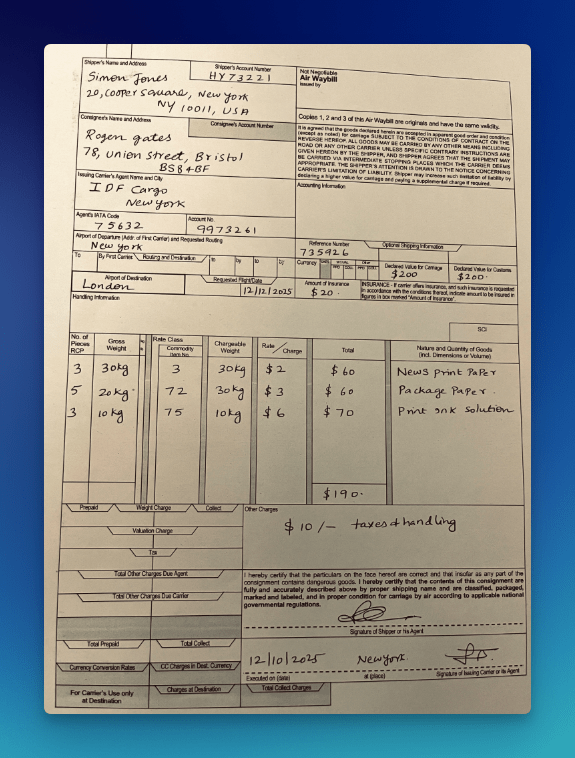 Shipper's Name and Address
Shipper's Account Number
HY73221
Simon Jones
20, Cooper Square, New York
NY 10011, USA
Not Negotiable
Air Waybill
Issued by
Copies 1, 2 and 3 of this Air Waybill are originals and have the same validity.
Consignee's Name and Address
Consignee's Account Number
Rogen gates
78, Union Street, Bristol
BS8 4BF
It is agreed that the goods declared herein are accepted in apparent good order and condition
(except as noted) for carriage SUBJECT TO THE CONDITIONS OF CONTRACT ON THE
REVERSE HEREOF. ALL GOODS MAY BE CARRIED BY ANY OTHER MEANS INCLUDING
ROAD OR ANY OTHER CARRIER UNLESS SPECIFIC CONTRARY INSTRUCTIONS ARE
GIVEN HEREON BY THE SHIPPER, AND SHIPPER AGREES THAT THE SHIPMENT MAY
BE CARRIED VIA INTERMEDIATE STOPPING PLACES WHICH THE CARRIER DEEMS
APPROPRIATE. THE SHIPPER'S ATTENTION IS DRAWN TO THE NOTICE CONCERNING
CARRIER'S LIMITATION OF LIABILITY. Shipper may increase such limitation of liability by
declaring a higher value for carriage and paying a supplemental charge if required.
Issuing Carrier's Agent Name and City
IDF Cargo
New york
Accounting Information
Agent's IATA Code
75632
Account No.
9973261
Airport of Departure (Addr. of First Carrier) and Requested Routing
New york
Reference Number
735926
Optional Shipping Information
To By First Carrier Routing and Destination to by to by
Currency
Declared Value for Carriage
$200
Declared Value for Customs
$200.
Airport of Destination
London
Requested Flight/Date
12/12/2025
Amount of Insurance
$20.
INSURANCE - If carrier offers insurance, and such insurance is requested
in accordance with the conditions thereof, indicate amount to be insured in
figures in box marked "Amount of Insurance".
Handling Information
SCI
No. of Pieces RCP Gross Weight Rate Class Commodity Item No. Chargeable Weight Rate / Charge Total Nature and Quantity of Goods (incl. Dimensions or Volume)
3 30kg 3 30kg $2 $60 News Print Paper
5 20kg 72 30kg $3 $60 Package Paper.
3 10kg 75 10kg $6 $70 Print Ink Solution
$190.
Prepaid Weight Charge Collect
Other Charges
$10/- taxes & handling
Valuation Charge
Tax
Total Other Charges Due Agent
Total Other Charges Due Carrier
I hereby certify that the particulars on the face hereof are correct and that insofar as any part of the
consignment contains dangerous goods. I hereby certify that the contents of this consignment are
fully and accurately described above by proper shipping name and are classified, packaged,
marked and labeled, and in proper condition for carriage by air according to applicable national
governmental regulations.
Signature of Shipper or his Agent
Total Prepaid Total Collect
Currency Conversion Rates CC Charges in Dest. Currency
12/10/2025 New york.
Executed on (date) at (place) Signature of Issuing Carrier or its Agent
For Carrier's Use only
at Destination
Charges at Destination
Total Collect Charges